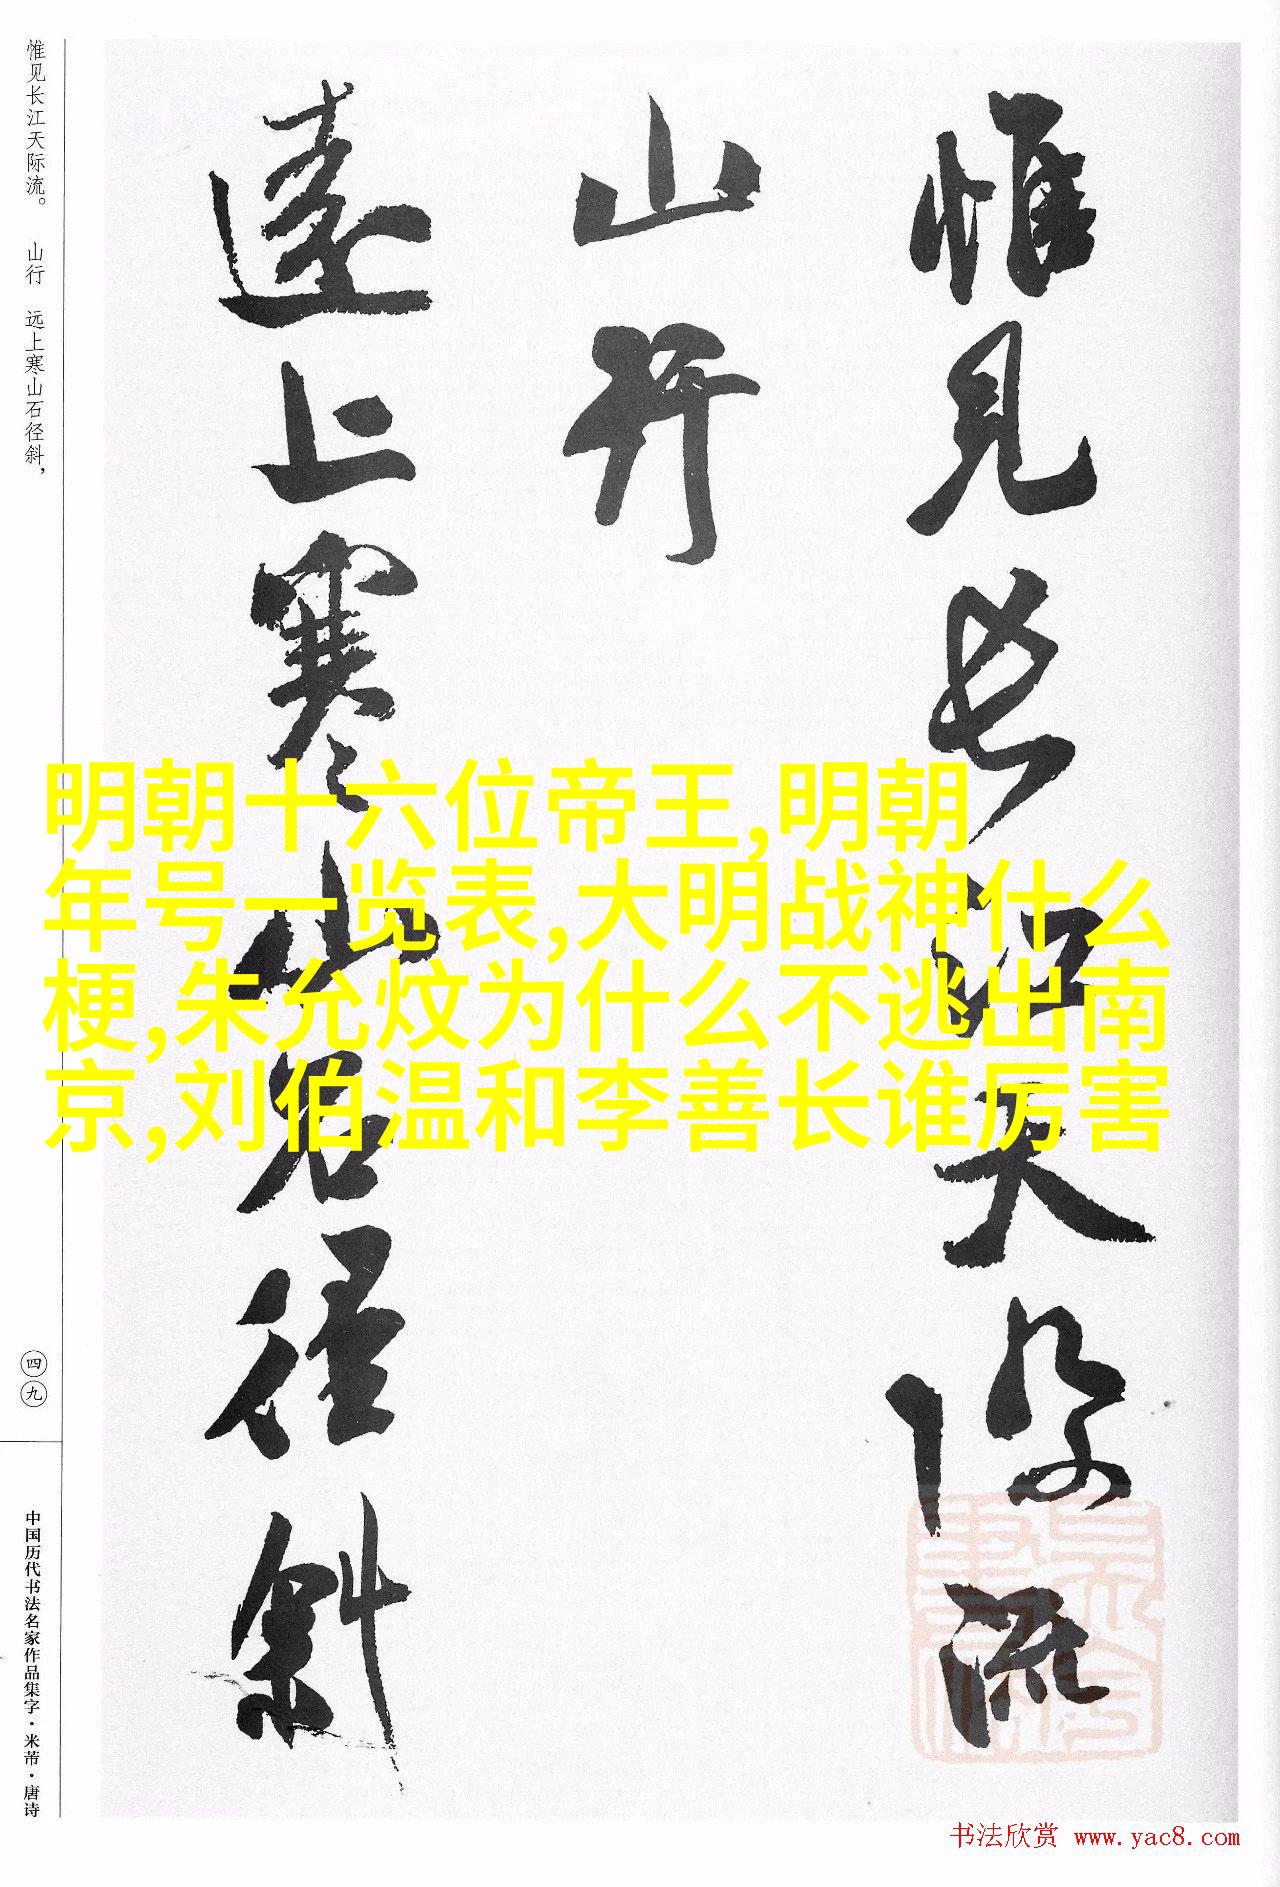 惟见长江天际流。 山行 远上寒山石径斜，
四九
中国历代书法名家作品集字·米芾·唐诗
惟見長江天際流
山行
遠上寒山石徑斜
明朝十六位帝王,明朝
年号一览表,大明战神什么
梗,朱允炆为什么不逃出南
京,刘伯温和李善长谁厉害
书法欣赏 www.yac8.com